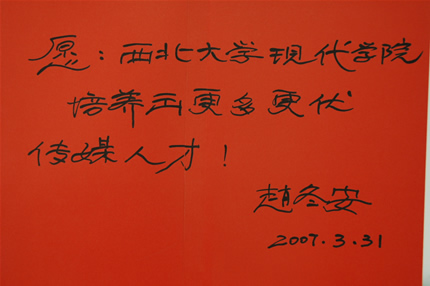 愿：西北大学现代学院
培养出更多更优
传媒人才！
赵冬安
2007.3.31